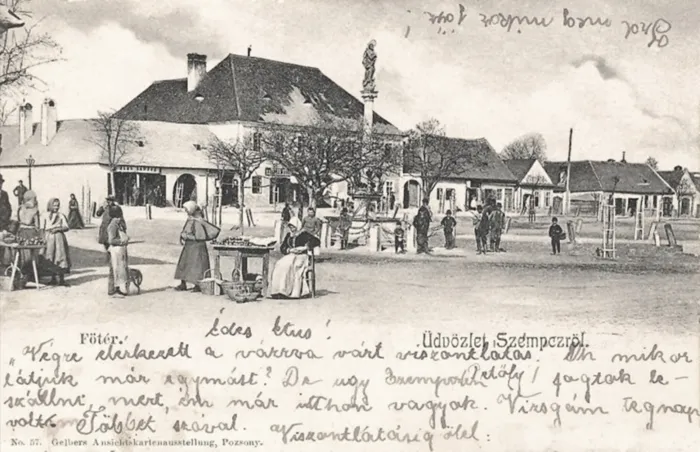 Írd meg mikor jösz!
Édes Etus!
Főtér.
Üdvözlet Szempczről.
„Végre elérkezett a várrva várt viszontlátás. Oh mikor
látjuk már egymást? De ugy Szempczen fogtok le-
szállni, mert, én már itthon vagyok. Vizsgám tegnap
volt. Többet szóval. Viszontlátásig ölel:
No. 57. Gelbers Ansichtskartenausstellung, Pozsony.